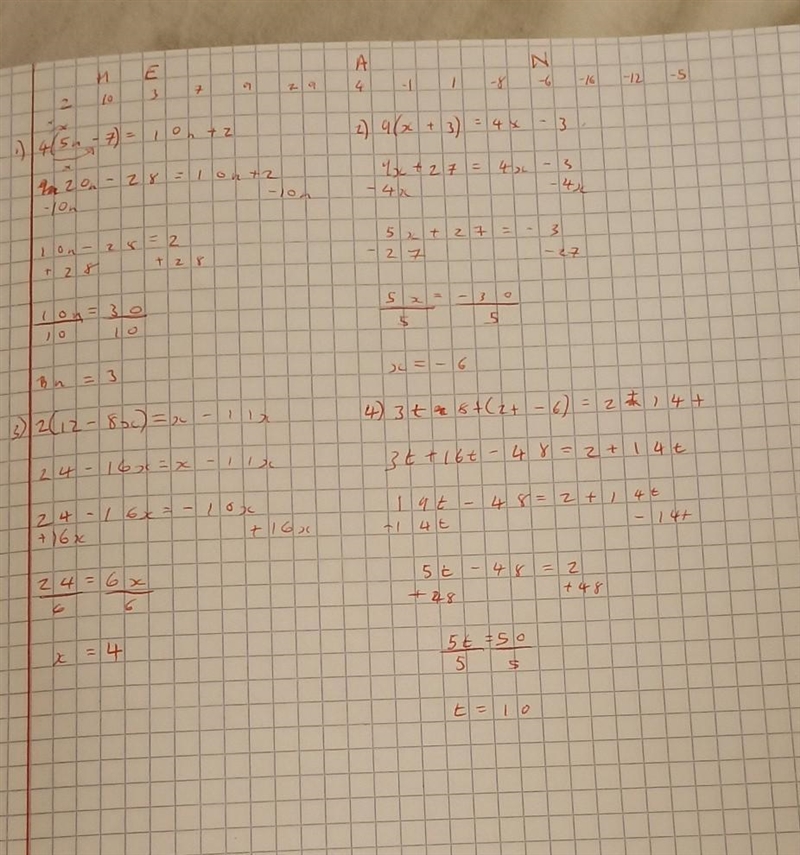 H E A N
2 10 3 7 9 29 4 -1 1 -8 -6 -16 -12 -5
1) 4(5n - 7) = 10n + 2
20n - 28 = 10n + 2
-10n -10n
10n - 28 = 2
+ 28 + 28
10n = 30
10 10
n = 3
2) 9(x + 3) = 4x - 3
9x + 27 = 4x - 3
- 4x - 4x
5x + 27 = - 3
- 27 - 27
5x = - 30
5 5
x = - 6
3) 2(12 - 8x) = x - 11x
24 - 16x = x - 11x
24 - 16x = - 10x
+16x + 16x
24 = 6x
6 6
x = 4
4) 3t 8+(2t - 6) = 2 + 14t
3t + 16t - 48 = 2 + 14t
19t - 48 = 2 + 14t
14t - 14t
5t - 48 = 2
+ 48 + 48
5t = 50
5 5
t = 10